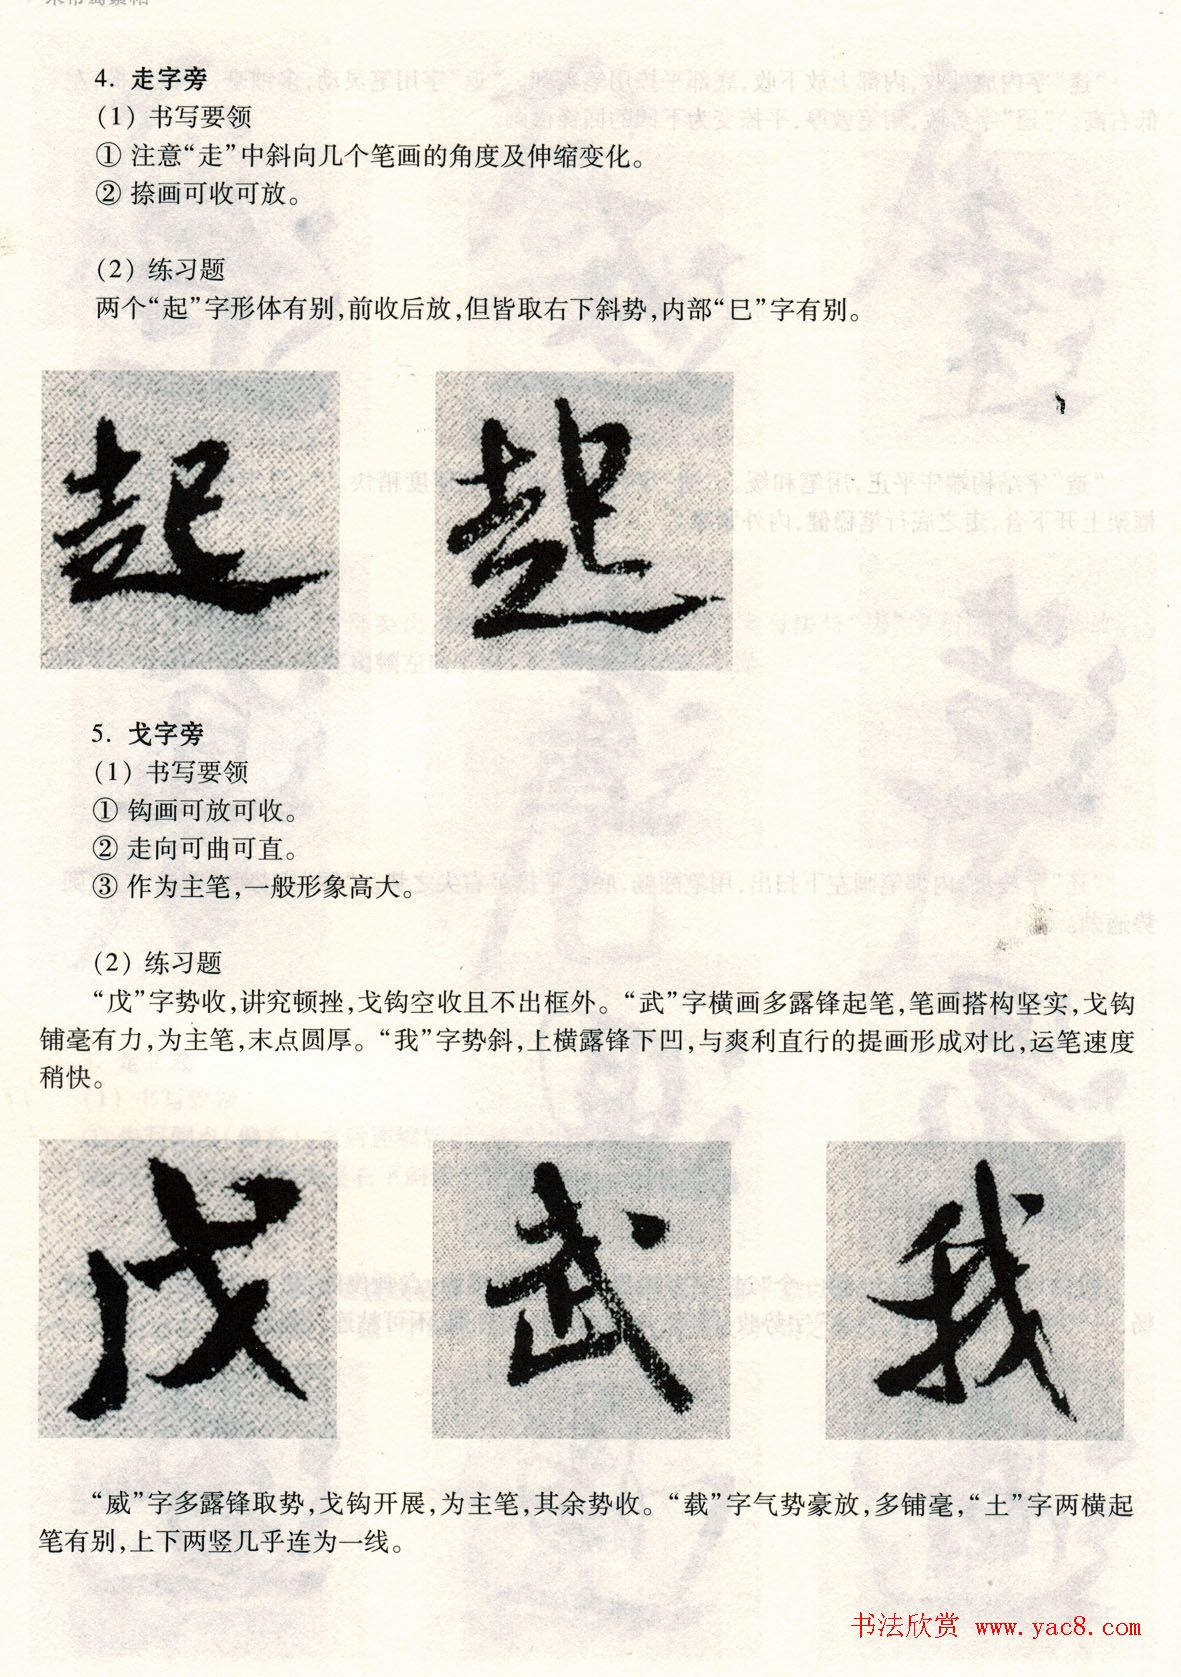 4. 走字旁
(1) 书写要领
① 注意“走”中斜向几个笔画的角度及伸缩变化。
② 捺画可收可放。
(2) 练习题
两个“起”字形体有别,前收后放,但皆取右下斜势,内部“巳”字有别。
起 起
5. 戈字旁
(1) 书写要领
① 钩画可放可收。
② 走向可曲可直。
③ 作为主笔,一般形象高大。
(2) 练习题
“戊”字势收,讲究顿挫,戈钩空收且不出框外。“武”字横画多露锋起笔,笔画搭构坚实,戈钩
铺毫有力,为主笔,末点圆厚。“我”字势斜,上横露锋下凹,与爽利直行的提画形成对比,运笔速度
稍快。
戊 武 我
“威”字多露锋取势,戈钩开展,为主笔,其余势收。“载”字气势豪放,多铺毫,“土”字两横起
笔有别,上下两竖几乎连为一线。
书法欣赏 www.yac8.com